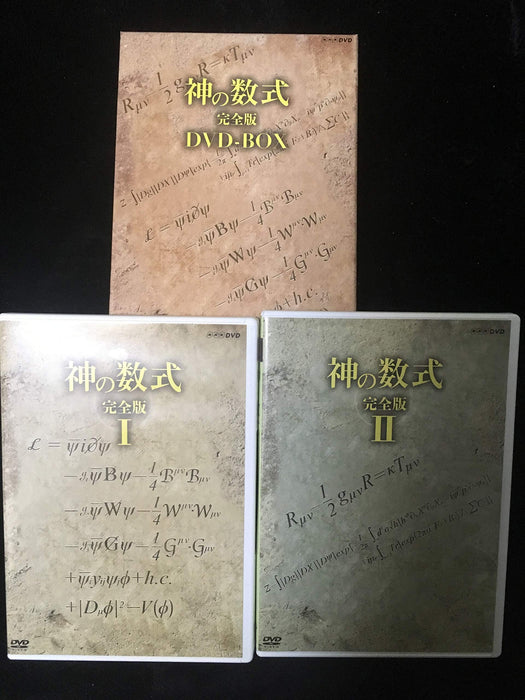 NHK DVD
Rμν−1/2gμνR=κTμν
神の数式
完全版
DVD-BOX
ℒ = ψ̄i∂̸ψ
−g₁ψ̄Bψ−1/4BμνBμν
−g₂ψ̄Wψ−1/4Wμν·Wμν
−g₃ψ̄Gψ−1/4Gμν·Gμν
+h.c.
NHK DVD
神の数式
完全版
I
ℒ = ψ̄i∂̸ψ
−g₁ψ̄Bψ−1/4BμνBμν
−g₂ψ̄Wψ−1/4Wμν·Wμν
−g₃ψ̄Gψ−1/4Gμν·Gμν
+ψ̄ᵢyᵢⱼψⱼϕ+h.c.
+|Dμϕ|²−V(ϕ)
DVD
VIDEO
NHK DVD
神の数式
完全版
II
Rμν−1/2gμνR=κTμν
DVD
VIDEO